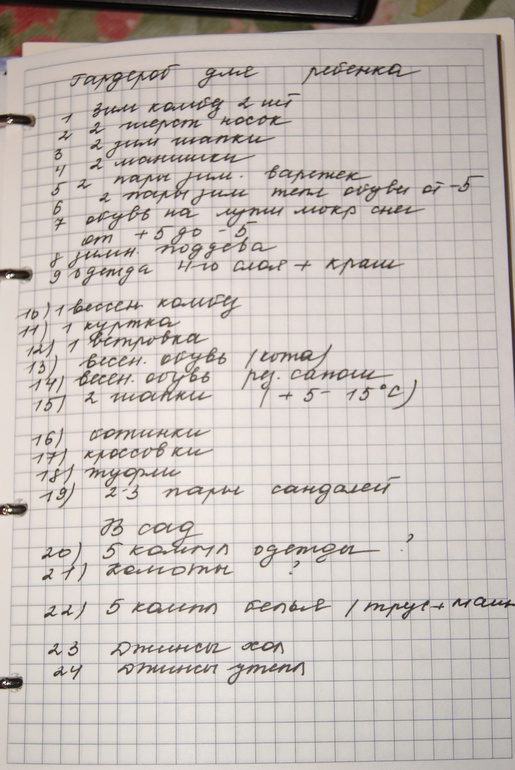 Гардероб для ребенка
1 Зим комбез 2 шт
2 2 шерст носок
3 2 зим шапки
4 2 манишки
5 2 пары зим. варежек
6 2 пары зим тепл обуви от -5
7 обувь на лужи мокр снег
от +5 до -5
8 зимн. поддева
9 одежда 4-го слоя + краш
10) 1 весен комбез
11) 1 куртка
12) 1 ветровка
13) весен. обувь (кожа)
14) весен. обувь рез. сапоги
15) 2 шапки (+5 - 15°С)
16) ботинки
17) кроссовки
18) туфли
19) 2-3 пары сандалей
В сад
20) 5 компл одежды ?
21) ?
22) 5 компл белья (трус + май
23 Джинсы хол
24 Джинсы утепл